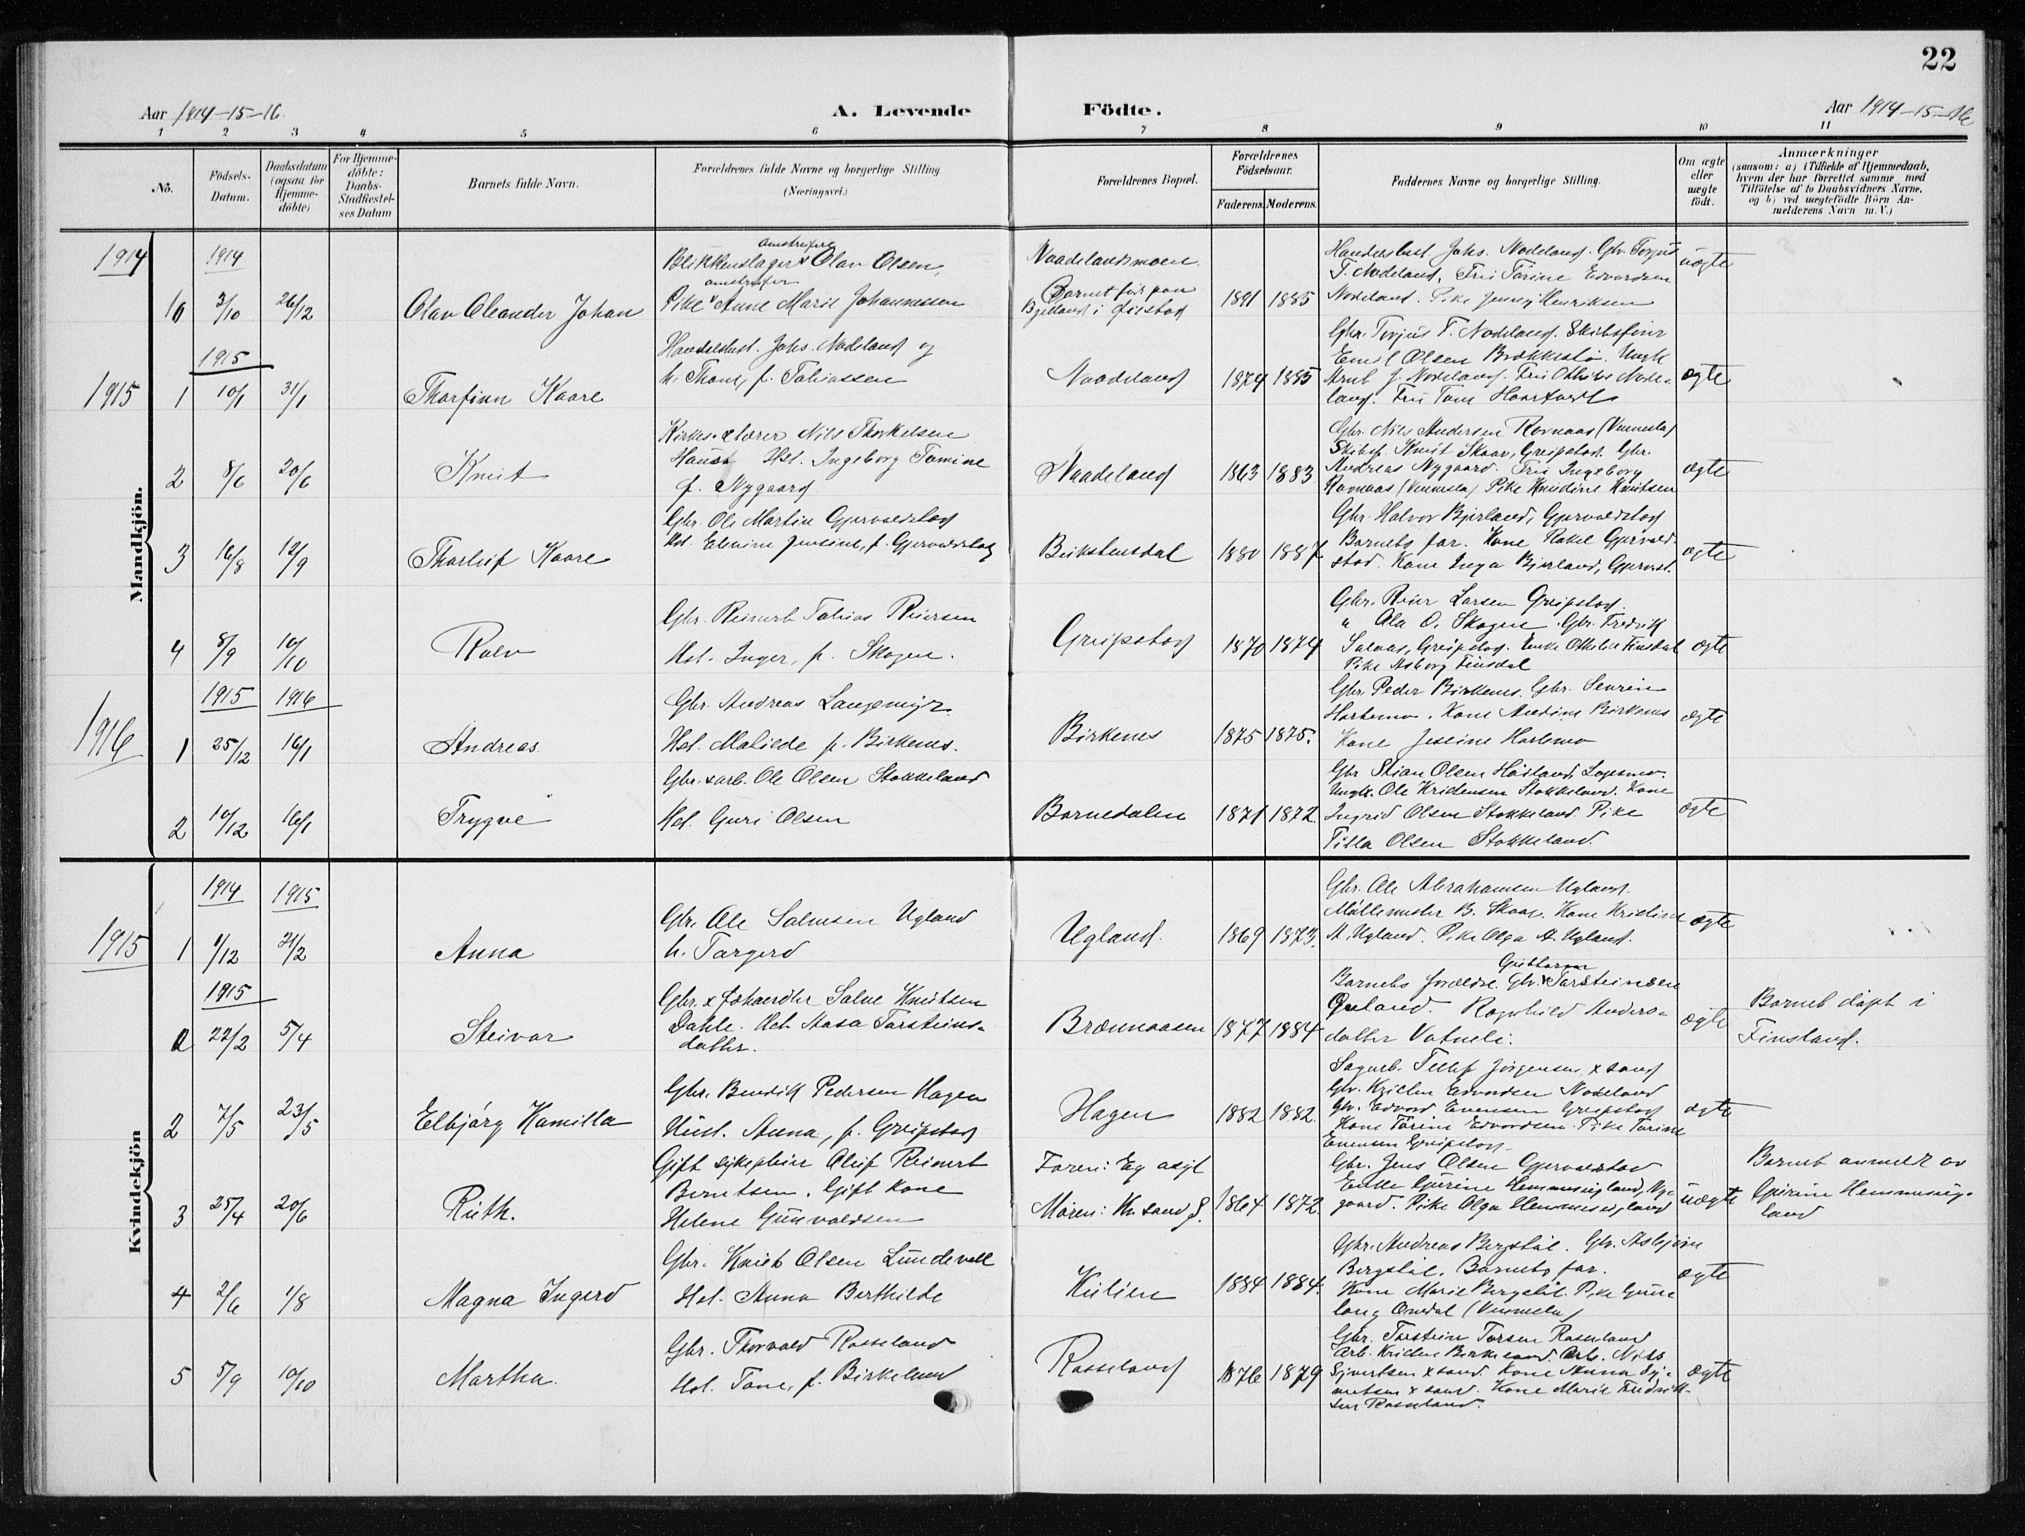 22
Aar 1914-15-16.
A. Levende
Födte.
Aar 1914-15-16
1 2 3 4 5 6 7 8 9 10 11
No.
Födsels-
Datum.
Daabsdatum
(ogsaa for
Hjemme-
döbte)
For Hjemme-
döbte:
Daabs-
Stadfæstel-
ses Datum
Barnets fulde Navn.
Forældrenes fulde Navne og borgerlige Stilling
(Næringsvei.)
Forældrenes Bopæl.
Forældrenes
Födselsaar.
Faderens. Moderens.
Faddernes Navne og borgerlige Stilling.
Om ægte
eller
uægte
födt.
Anmærkninger
(saasom: a) i Tilfælde af Hjemmedaab,
hvem der har forrettet samme med
Tilföielse af to Daabsvidners Navne,
og b) ved uægtefödte Börn An-
melderens Navn m. V.)
Mandkjön.
1914
1914
10 3/10 26/12
Olav Oleander Johan
omstreifer
Blikkenslager Olav Olsen,
omstreifer
Pike Anne Marie Johannessen
Naadelandsmoen.
Barnet født paa
Bjelland i Øiestad
1891 1885
Handelsbest. Johs. Nodeland. Gbr. Terjus
T. Nodeland, Fru Tørine Edvardsen
Nodeland. Pike Jenny Henriksen
uægte
1915
1915
1 10/1 31/1
Thorfinn Kaare
Handelsbest. Johs. Nodeland og
h. Thone, f. Tobiassen
Naadeland
1874 1885
Gbr. Terjus T. Nodeland. Skibsfører
Emil Olsen Brækkestø. Ungk.
Arnt J. Nodeland. Fru Othilie Node-
land. Fru Tone Haartvedt
ægte
2 8/6 20/6
Knut
Kirkes. & lærer Nils Thorkelsen
Haust Hst. Ingeborg Tomine
f. Nygaard
Naadeland
1863 1883
Gbr. Nils Andersen Ravnaas (Vennesla)
Skibsf. Knut Skaar, Greipstad. Gbr.
Andreas Nygaard. Fru Ingeborg
Ravnaas (Vennesla) Pike Knudine Knutsen
ægte
3 16/8 12/9
Thorleif Kaare
Gbr. Ole Martin Gjervoldstad
Hst. Elevine Jensine, f. Gjervoldstad
1880 1887
Gbr. Halvor Bjerland, Gjervoldstad
Barnets far. Kone Rakel Gjervold-
stad. Kone Inga Bjerland, Gjervst.
ægte
4 8/9 10/10
Rolv
Gbr. Reinert Tobias Reiersen
Hst. Inger, f. Skogen.
Greipstad
1870 1874
Gbr. Reier Larsen Greipstad.
" Ola O. Skogen. Gbr. Fredrik
Salvas, Greipstad. Enke Othelie Finsdal
Pike Asborg Finsdal
ægte
1916
1915 1916
1 25/12 16/1
Andreas
Gbr. Andreas Langemyr
Hst. Malinde f. Birkenes.
Birkenes
1875 1875.
Gbr. Peder Birkenes. Gbr. Sevrin
Hortemo. Kone Andine Birkenes
Kone Jensine Hortemo
ægte
2 10/12 16/1
Trygve
Gbr. & arb. Ole Olsen Stokkeland
Hst. Guri Olsen
Bornedalen
1871 1872.
Gbr Stian Olsen Høiland, Lopsmo.
Ungk. Ole Kristensen Stokkeland. Kone
Ingrid Olsen Stokkeland. Pike
Tilla Olsen Stokkeland.
ægte
Kvindekjön
1915
1914 1915
1 1/12 21/2
Anna
Gbr. Ole Salvesen Ugland
h. Torgerd
Ugland.
1869 1873.
Gbr. Ole Abrahamsen Ugland.
Møllemester B. Skaar. Kone Kristine
A. Ugland. Pike Olga A. Ugland.
ægte
1915
a 22/2 5/4
Steivor
Gbr. & fehandler Salve Knutsen
Dahle. Hst. Aasa Torsteins-
datter.
Brænnaasen
1877 1884
Barnets forældre. Gbr. Torsteinsen
Øuland. Ragnhild Anders-
datter Vatneli.
ægte
Barnet døpt i
Finsland.
2 7/5 23/5
Elbjørg Kamilla
Gbr. Bendik Pedersen Hagen
Hust. Anna, f. Greipstad
Hagen
1882 1882.
Sagarb. Tellef Jørgensen, x sand
Gbr. Kristen Edvardsen Nodeland
Gbr. Edvard Evensen Greipstad
Kone Tørine Edvardsen. Pike Torine
Evensen Greipstad.
ægte
3 25/4 20/6
Ruth.
Gift sykepleier Oluf Reinert
Berntsen. Gift kone
Helene Gunvaldsen
Faren: Eg asyl
Moren: Kr.sand S.
1864 1872.
Gbr. Jens Olsen Gjervoldstad
Enke Gurine Hemmesigland, Ny-
gaard. Pike Olga Hemmesigland
uægte
Barnet anmeldt av
Gurine Hemmesig-
land
4 2/6 1/8
Magna Ingerd
Gbr. Knut Olsen Lundevoll
Hst. Anna Berthilde
Kulien
1884 1884.
Gbr. Andreas Bergstøl. Gbr. Asbjørn
Bergstøl. Barnets far.
Kone Marie Bergstøl. Pike Gunn
(Vennesla)
ægte
5 5/9 10/10
Martha.
Gbr. Thorvald Rosseland
Hst. Tone, f. Birkeland
Rosseland
1876 1879
Gbr. Torstein Torsen Rosseland
Arb. Kristen Birkeland. Arb. Nils
Sjivertsen x sand. Kone Anna Sji-
vertsen x sand. Kone Marie Fredrik-
sen Rosseland.
ægte